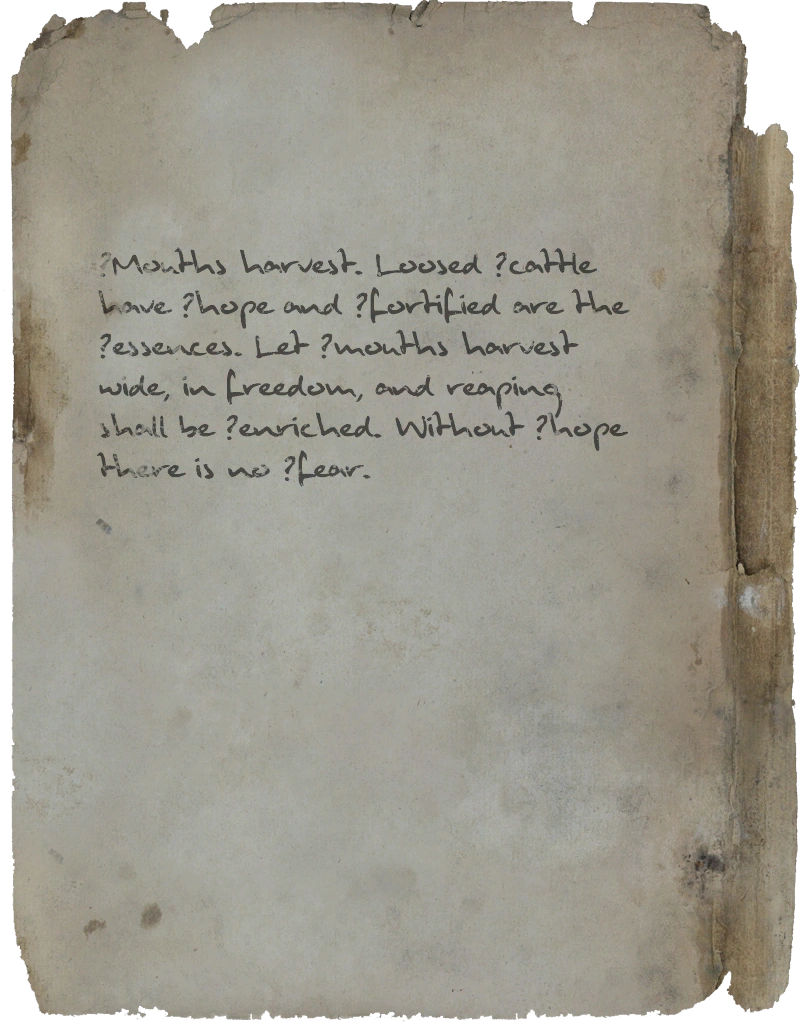 ?Mouths harvest. Loosed ?cattle
have ?hope and ?fortified are the
?essences. Let ?mouths harvest
wide, in freedom, and reaping
shall be ?enriched. Without ?hope
there is no ?fear.